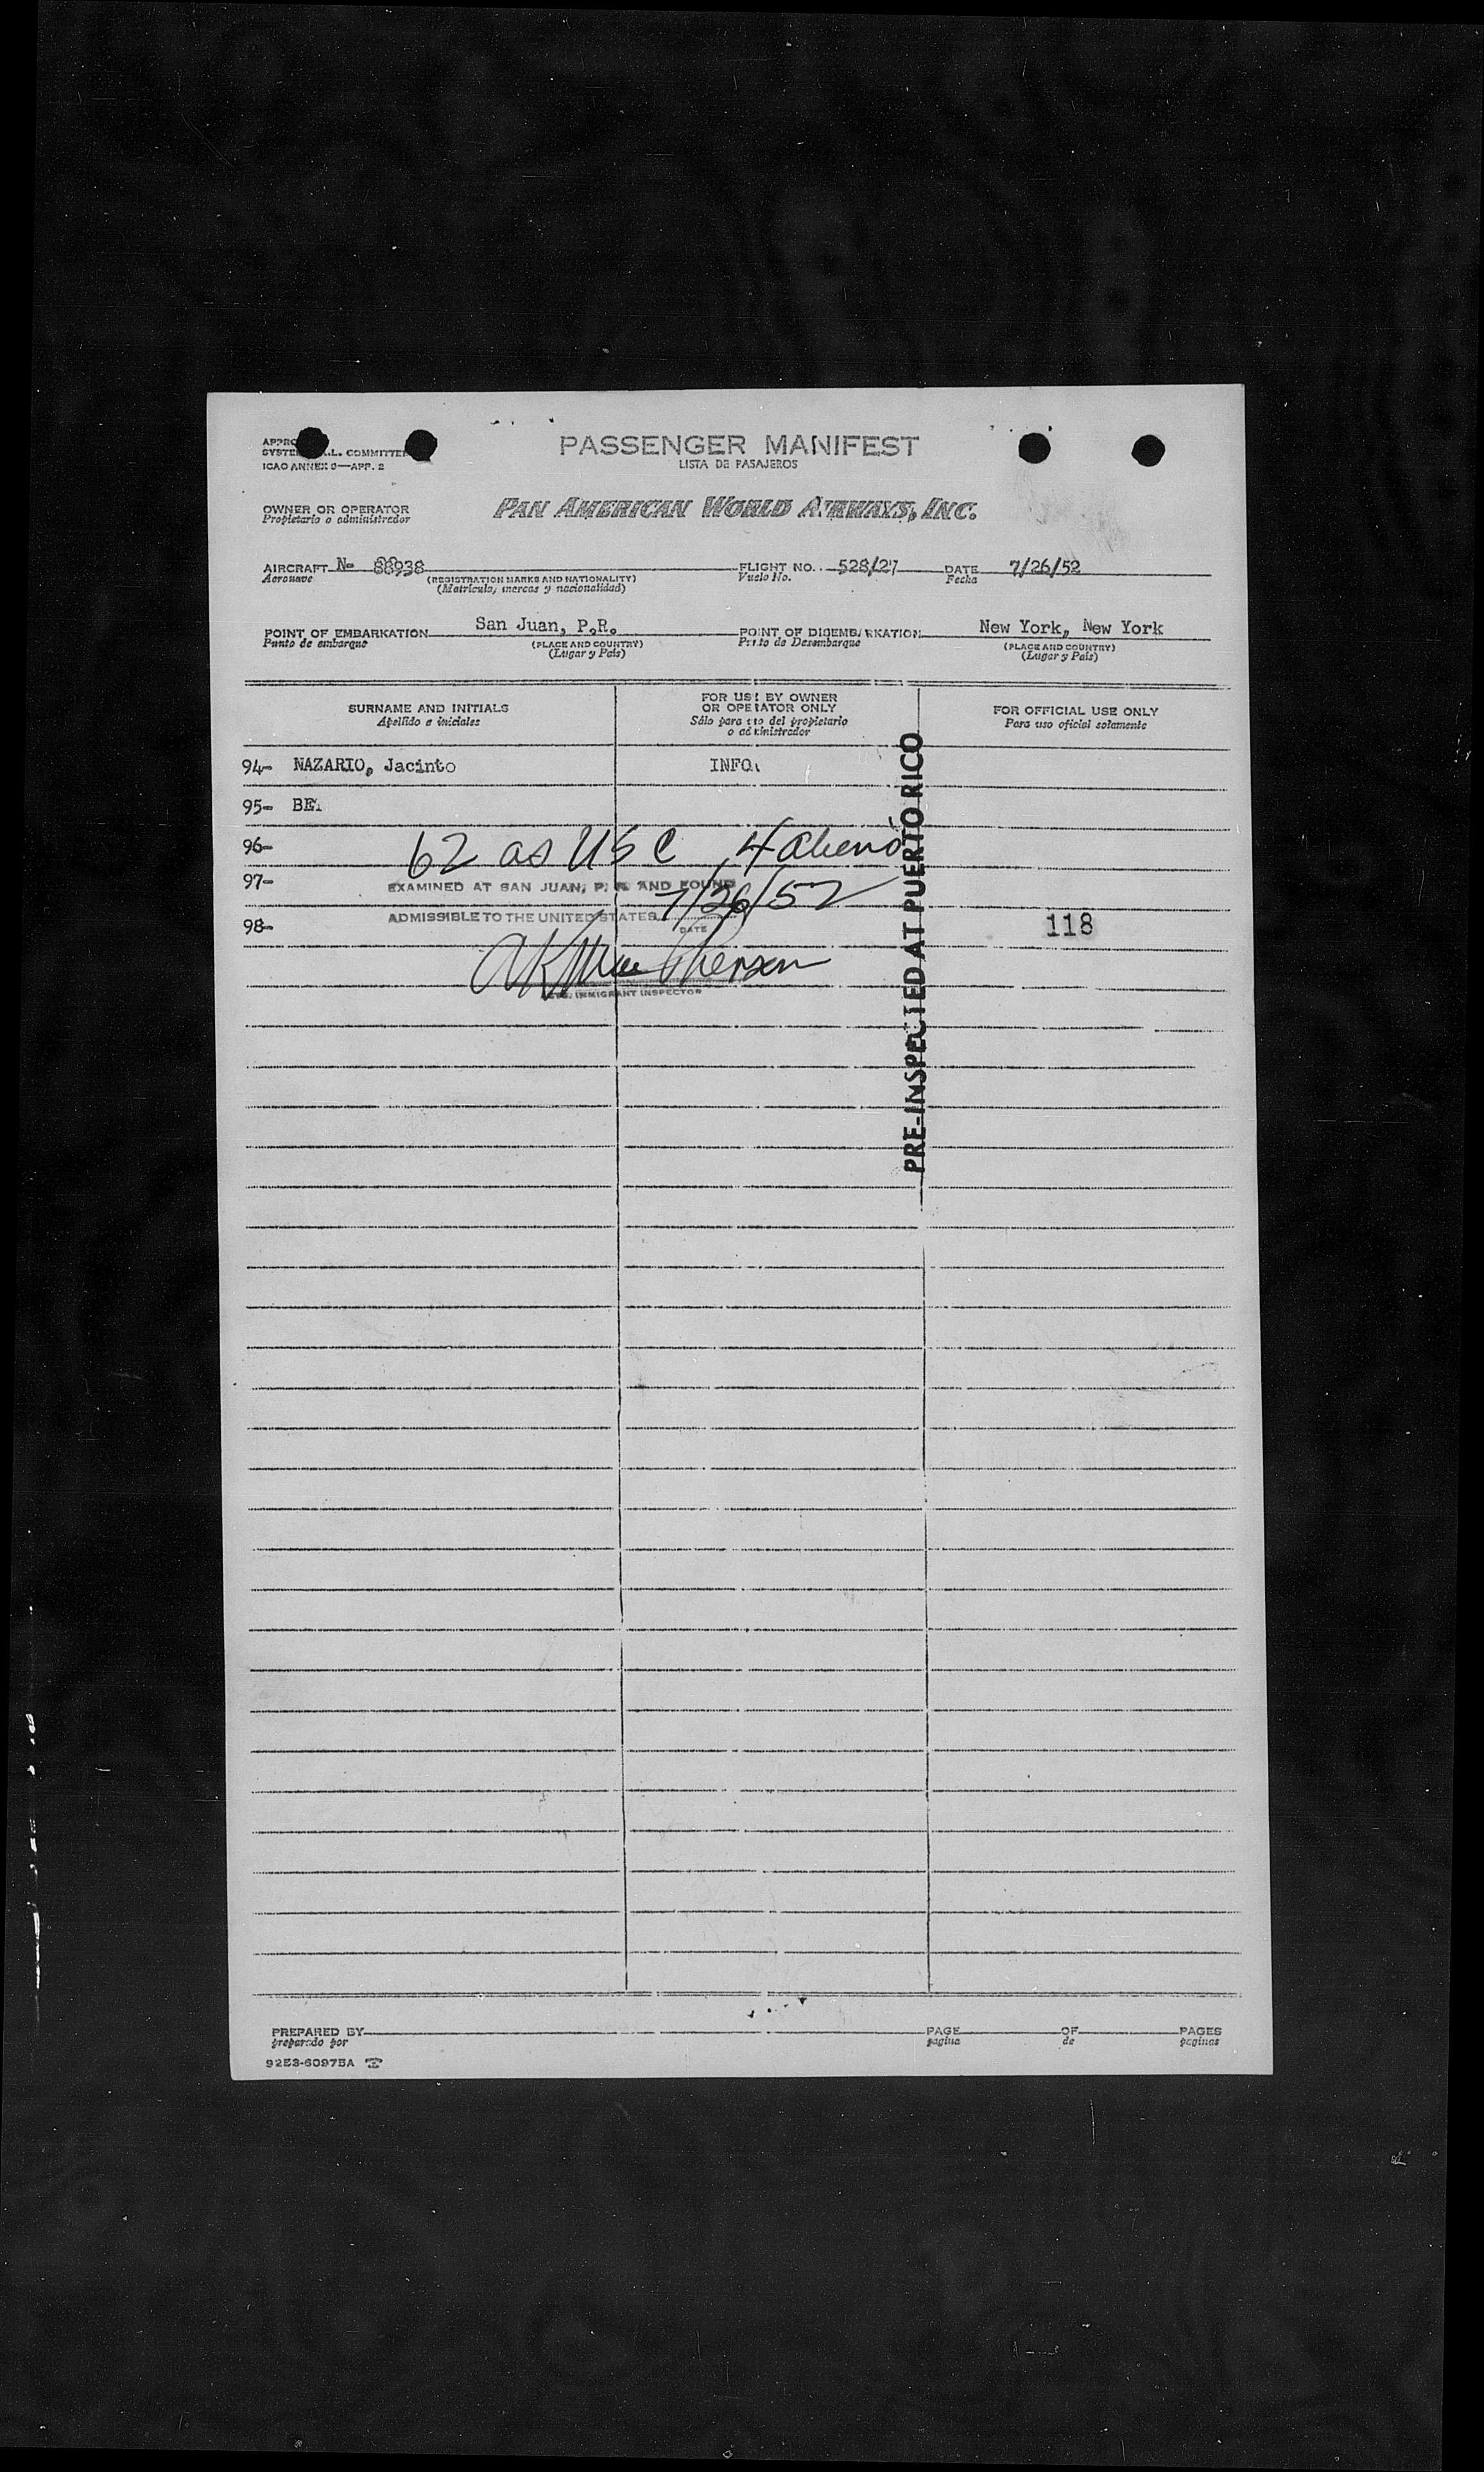 PASSENGER MANIFEST
LISTA DE PASAJEROS
SYSTEM COMMITTEE
ICAO ANNEX 9—APP. 2
OWNER OR OPERATOR
Propietario o administrador
PAN AMERICAN WORLD AIRWAYS, INC.
AIRCRAFT N- 88938 FLIGHT NO. 528/27 DATE 7/26/52
Aeronave (REGISTRATION MARKS AND NATIONALITY) Vuelo No. Fecha
(Matricula, marcas y nacionalidad)
POINT OF EMBARKATION San Juan, P.R. POINT OF DISEMBARKATION New York, New York
Punto de embarque (PLACE AND COUNTRY) Punto de Desembarque (PLACE AND COUNTRY)
(Lugar y País) (Lugar y País)
SURNAME AND INITIALS FOR USE BY OWNER OR OPERATOR ONLY FOR OFFICIAL USE ONLY
Apellido e iniciales Sólo para uso del propietario o administrador Para uso oficial solamente
94- NAZARIO, Jacinto INFO.
95-
96- 62 as USC 4 aliens
97- EXAMINED AT SAN JUAN, P. R. AND FOUND
98- ADMISSIBLE TO THE UNITED STATES 7/26/52 118
DATE
IMMIGRANT INSPECTOR
PRE-INSPECTED AT PUERTO RICO
PREPARED BY PAGE OF PAGES
preparado por pagina de paginas
92E3-60975A